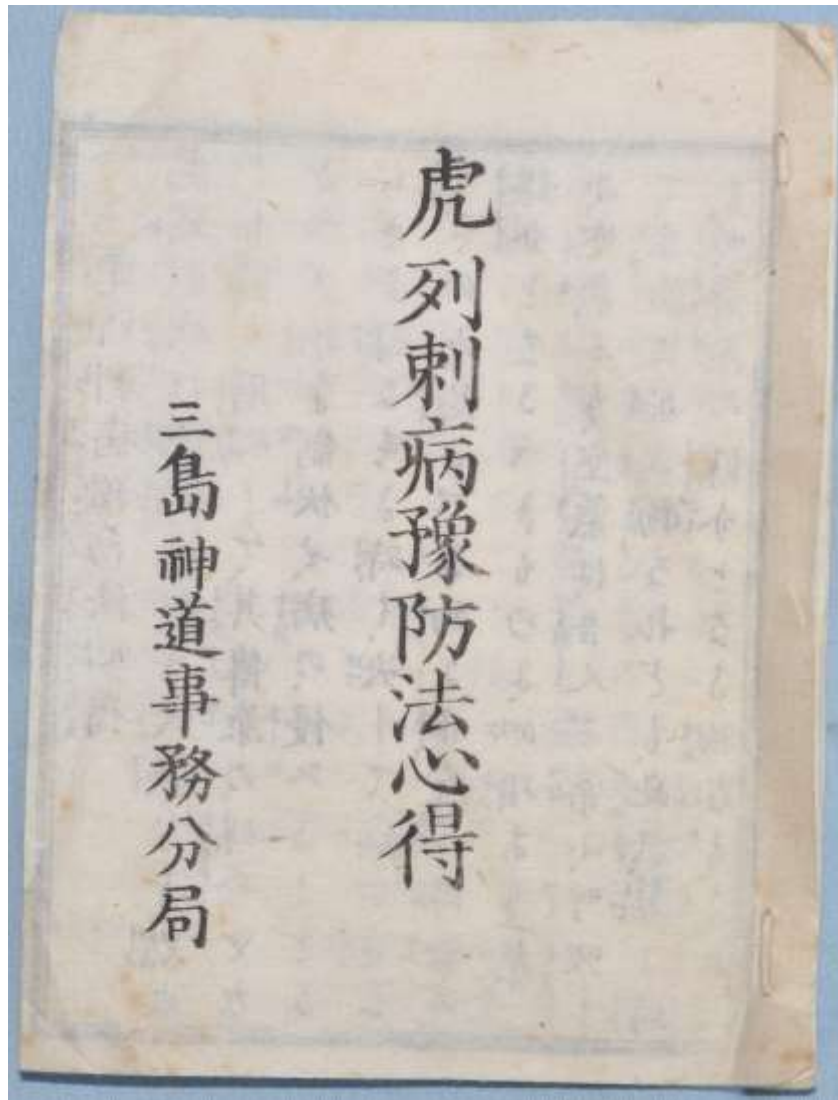 虎列剌病豫防法心得
三島神道事務分局